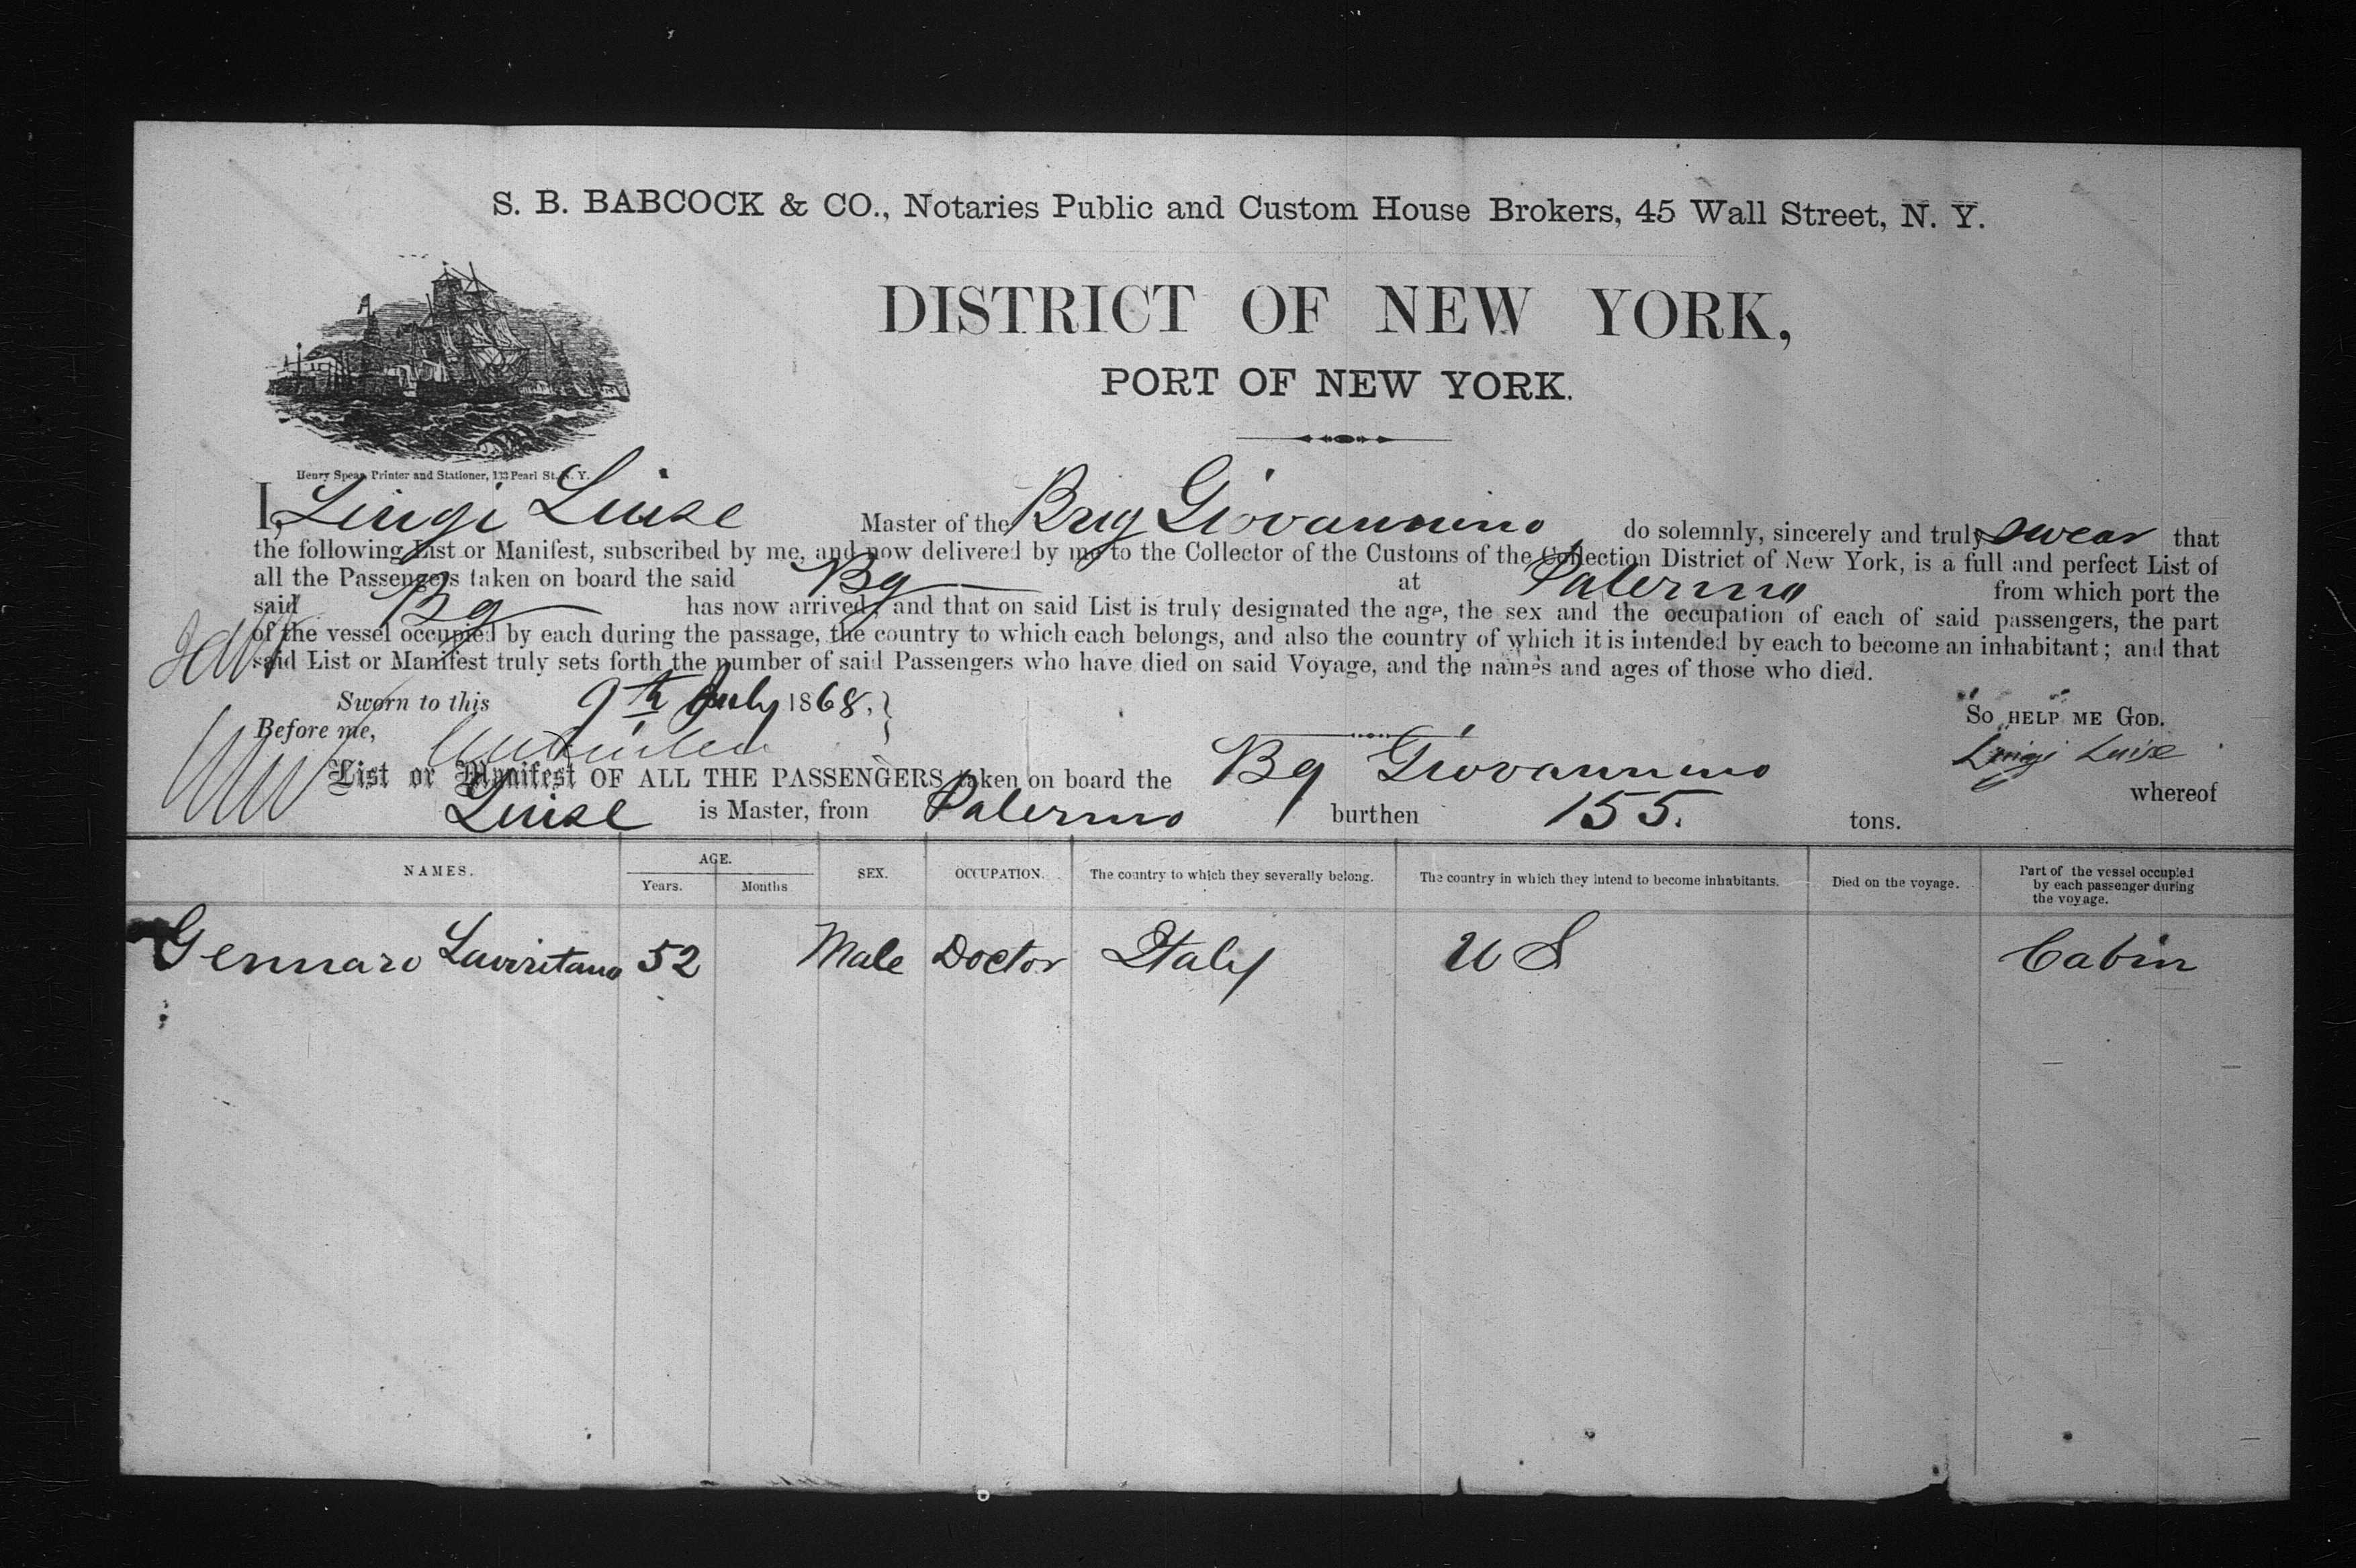 S. B. BABCOCK & CO., Notaries Public and Custom House Brokers, 45 Wall Street, N. Y.
DISTRICT OF NEW YORK,
PORT OF NEW YORK.
Henry Spear, Printer and Stationer, 133 Pearl St. N. Y.
I, Luigi Luise Master of the Brig Giovannino do solemnly, sincerely and truly swear that
the following List or Manifest, subscribed by me, and now delivered by me to the Collector of the Customs of the Collection District of New York, is a full and perfect List of
all the Passengers taken on board the said Bg at Palermo from which port the
said Bg has now arrived, and that on said List is truly designated the age, the sex and the occupation of each of said passengers, the part
of the vessel occupied by each during the passage, the country to which each belongs, and also the country of which it is intended by each to become an inhabitant; and that
said List or Manifest truly sets forth the number of said Passengers who have died on said Voyage, and the names and ages of those who died.
Sworn to this 9th July 1868,
SO HELP ME GOD.
Before me,
Luigi Luise
List or Manifest OF ALL THE PASSENGERS taken on board the Bg Giovannino whereof
Luise is Master, from Palermo burthen 155. tons.
NAMES. AGE. Years. Months SEX. OCCUPATION. The country to which they severally belong. The country in which they intend to become inhabitants. Died on the voyage. Part of the vessel occupied by each passenger during the voyage.
Gennaro Lauritano 52 Male Doctor Italy U S Cabin